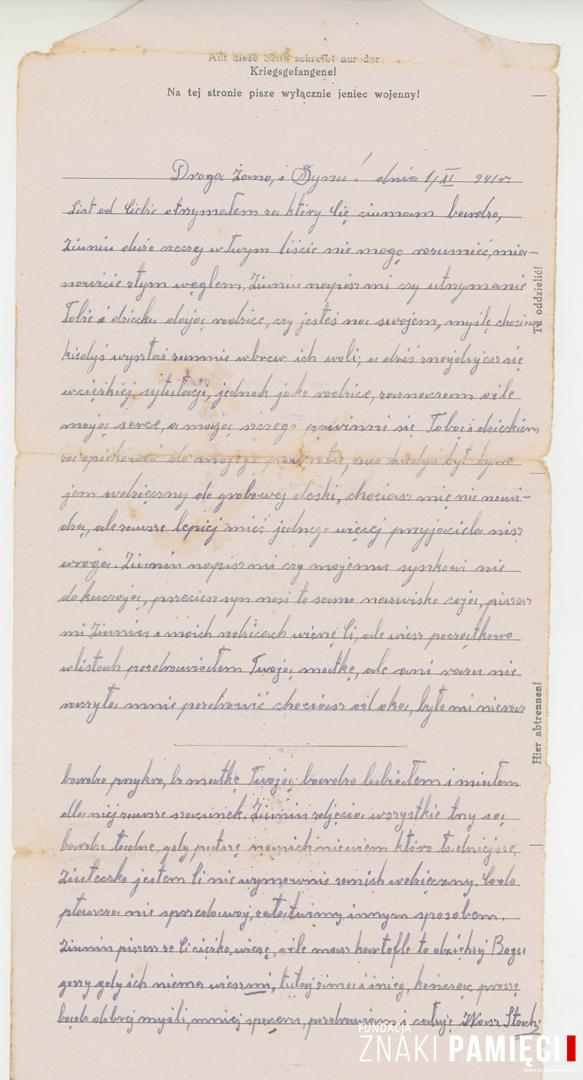 Auf diese Seite schreibt nur der
Kriegsgefangene!
Na tej stronie pisze wyłącznie jeniec wojenny!
Droga Żono, i Synu! dnia 1/XI 941r.
List od Ciebie otrzymałem za który Cię ciumam bardzo,
Ziuniu dużo rzeczy w Twym liście nie mogę rozumieć, mia-
nowicie z tym węglem, Ziuniu napisz mi czy utrzymanie
Tobie i dziecku dają rodzice, czy jesteś na swojem, myślę chociaż
kiedyś wyszłaś zamnie wbrew ich woli, a dziś znajdujesz się
w ciężkiej sytułacji, jednak jako rodzice, zaznaczam o ile
mają serce, a mając szczego powinni się Tobą i dzieckiem
zaopiekować do mojego powrotu, a ja kiedyś był bym
jem wdzięczny do grobowej doski, chociasz mię nie nawi-
dzą, ale zawsze lepiej mieć jednego więcej przyjaciela nisz
wroga. Ziuniu napisz mi czy mojemu synkowi nie
dokuczają, przecież syn nosi to samo nazwisko co ja, piszesz
mi Ziuniu o moich rodzicach wierzę Ci, ale wiesz początkowo
w listach pozdrawiałem Twoją matkę, ale ani razu nie
raczyła mnie pozdrowić chociasz od oka, było mi nieraz
bardzo przykro, bo matkę Twoją bardzo lubiałem i miałem
dla niej zawsze szacunek. Ziuniu zdjęcia wszystkie trzy są
bardzo ładne, gdy patrzę na nich niewiem które ładniejsze,
Ziuteczko jestem Ci nie wymownie za nich wdzięczny. Co do
płaszcza nie sprzedawaj, załatwimy innym sposobem.
Ziuniu piszesz że Ci ciężko, wierzę, o ile masz kartofle to dziękuj Bogu
gorzy gdy ich niema, tutaj zimno i śnieg, kończąc proszę
bądź dobrej myśli, mniej spaceru, pozdrawiam i całuję Wasz Stach
Tu oddzielić!
Hier abtrennen!
FUNDACJA
ZNAKI PAMIĘCI